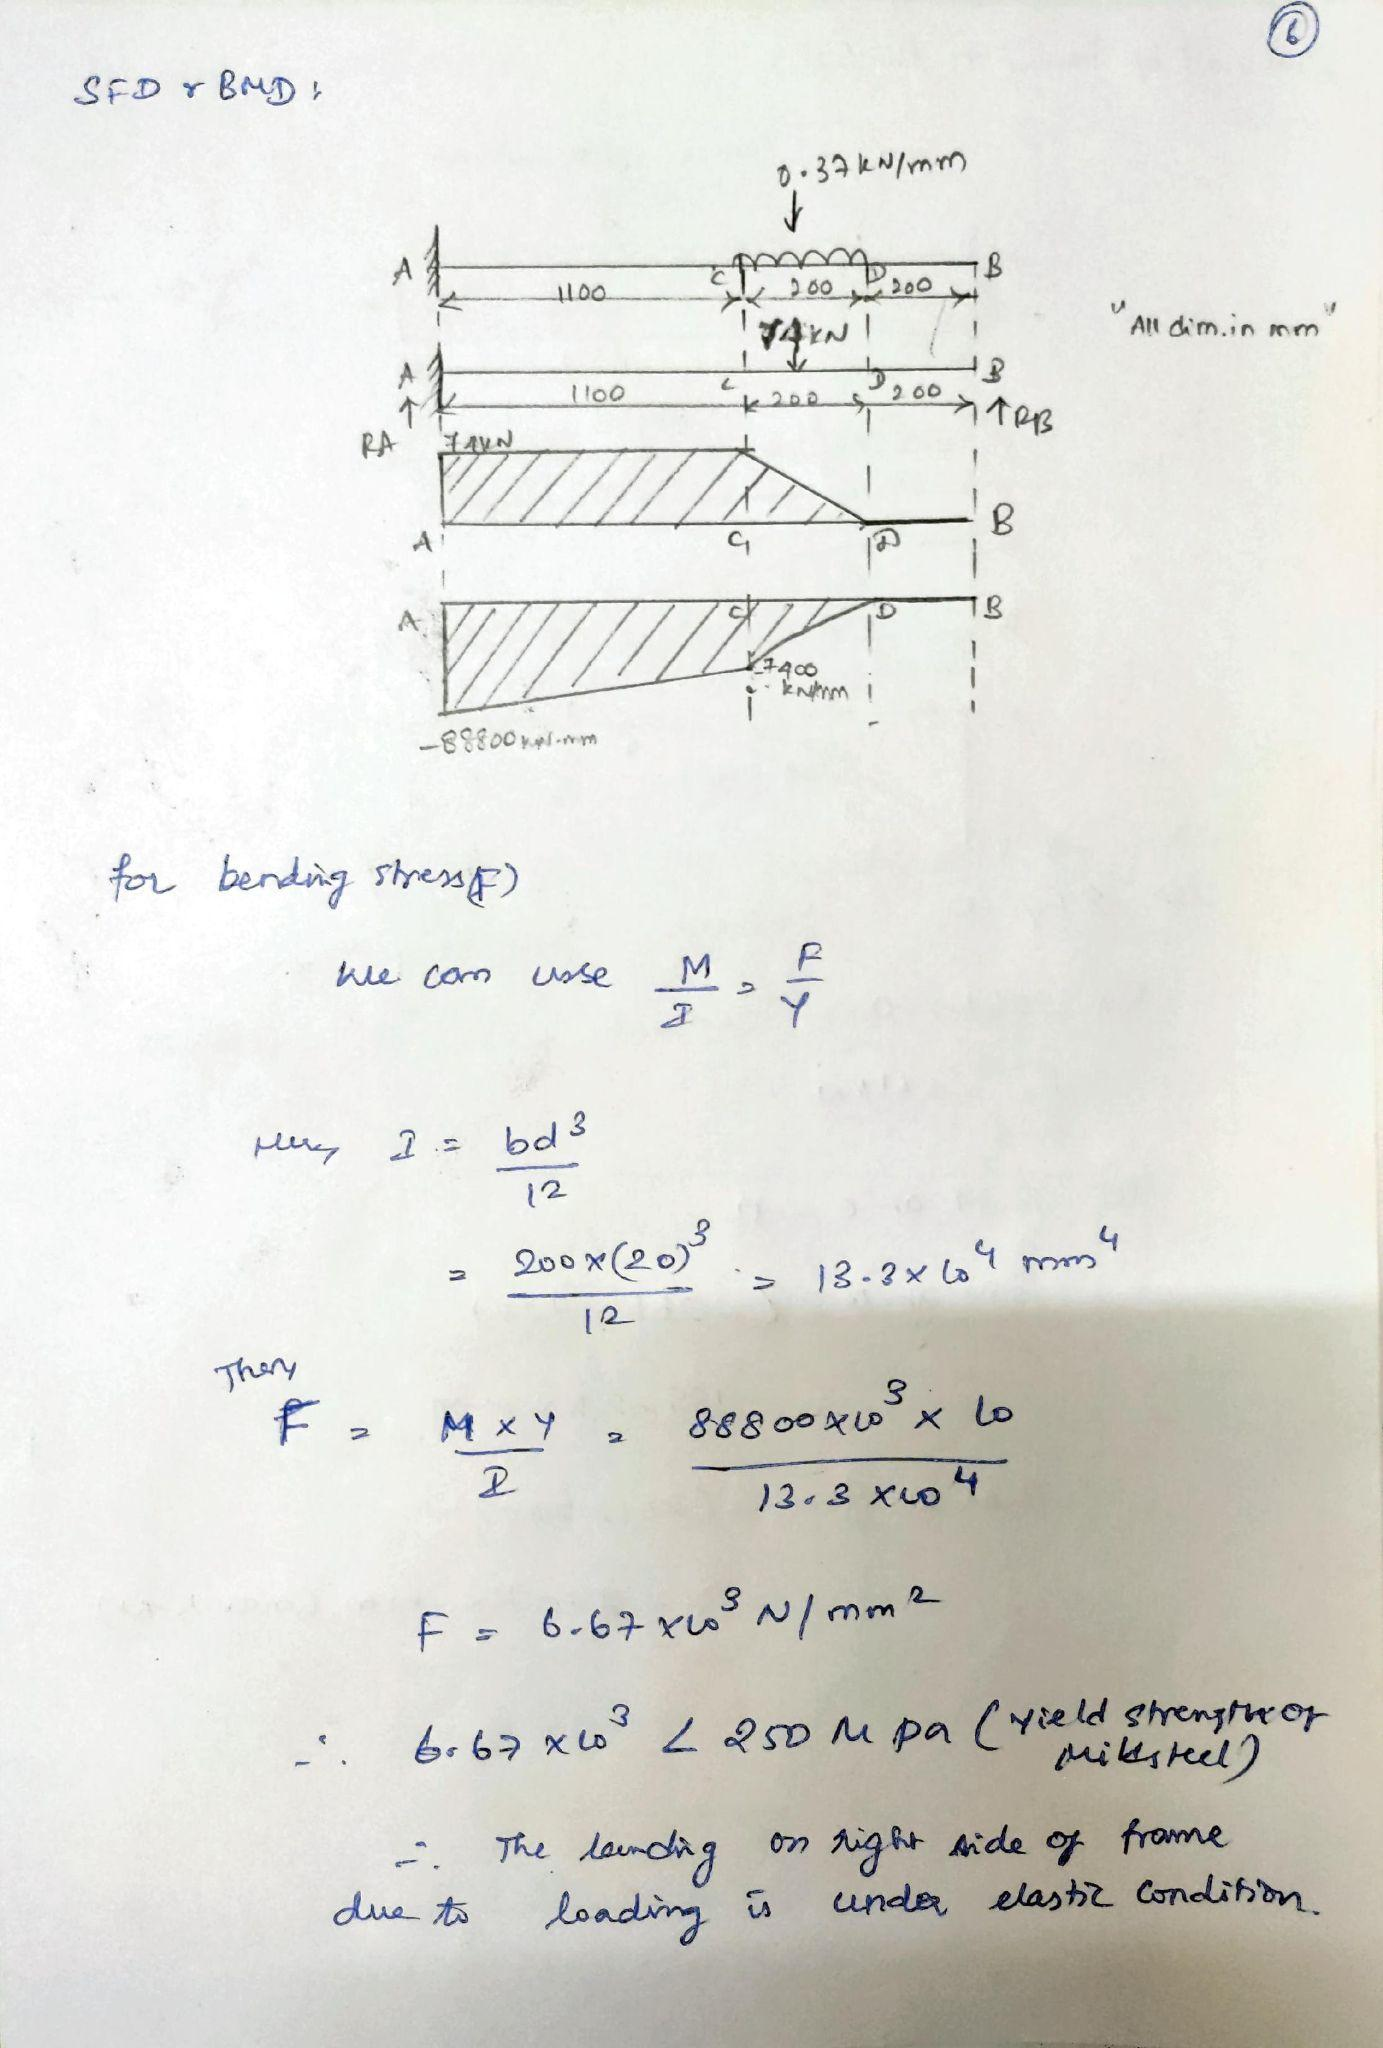 6
SFD & BMD :
0.37 kN/mm
A C D B
1100 200 200
"All dim. in mm"
74 kN
A C D B
1100 200 200
RA RB
74 kN
A C D B
A C D B
-7400
kN/mm
-88800 kN-mm
for bending stress (F)
We can use M/I = F/Y
Here, I = bd³/12
= 200x(20)³/12 = 13.3x10⁴ mm⁴
Then,
F = MxY/I = 88800x10³ x 10/13.3 x10⁴
F = 6.67 x10³ N/mm²
∴ 6.67 x10³ < 250 M pa (Yield strength of
Mild steel)
∴ The bending on right side of frame
due to loading is under elastic condition.